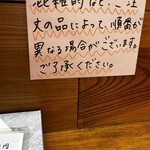 混雑時など、ご注
文の品によって、順番が
異なる場合がございます。
ご了承ください。
円